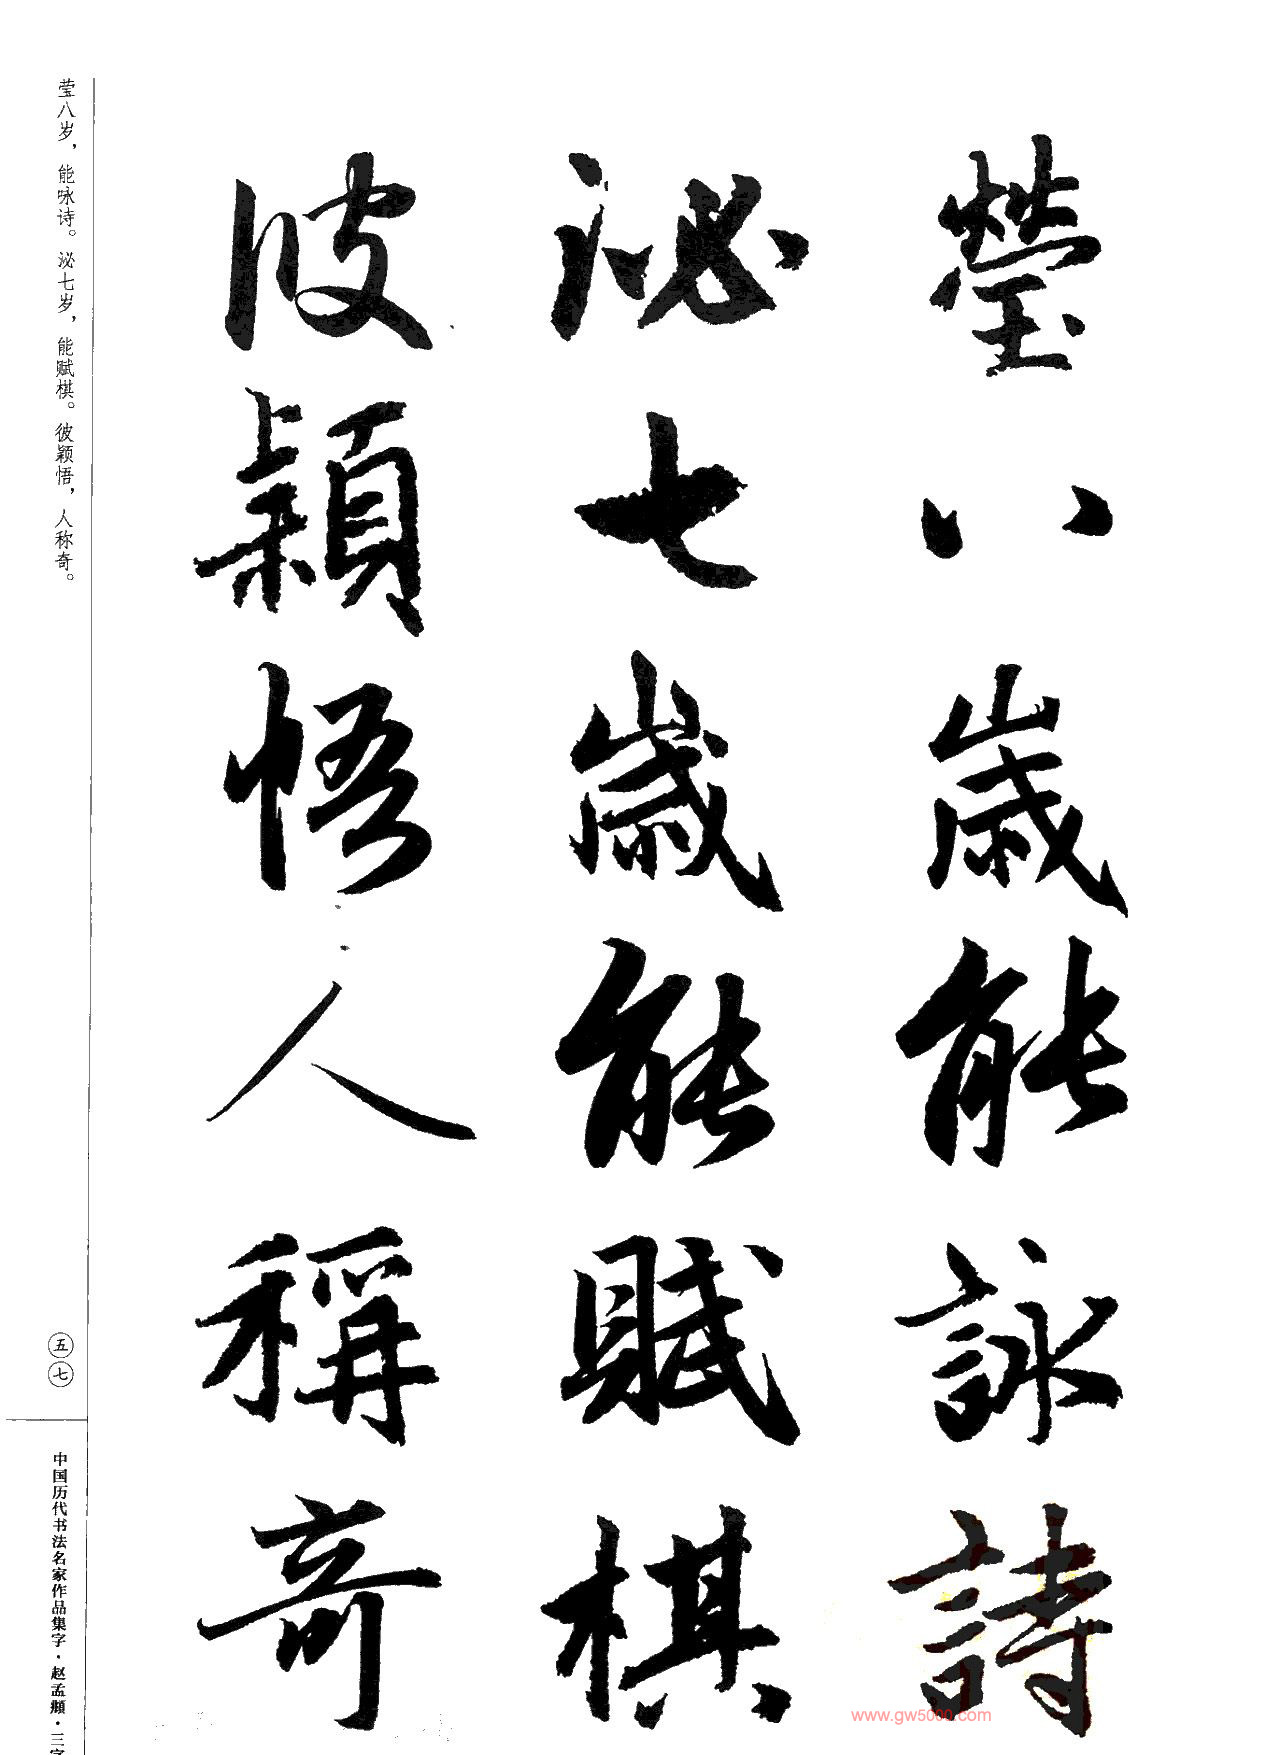 瑩八歲能詠詩
泌七歲能賦棋
彼穎悟人稱奇
莹八岁，能咏诗。泌七岁，能赋棋。彼颖悟，人称奇。
五七
中国历代书法名家作品集字·赵孟頫·三字
www.gw5000.com